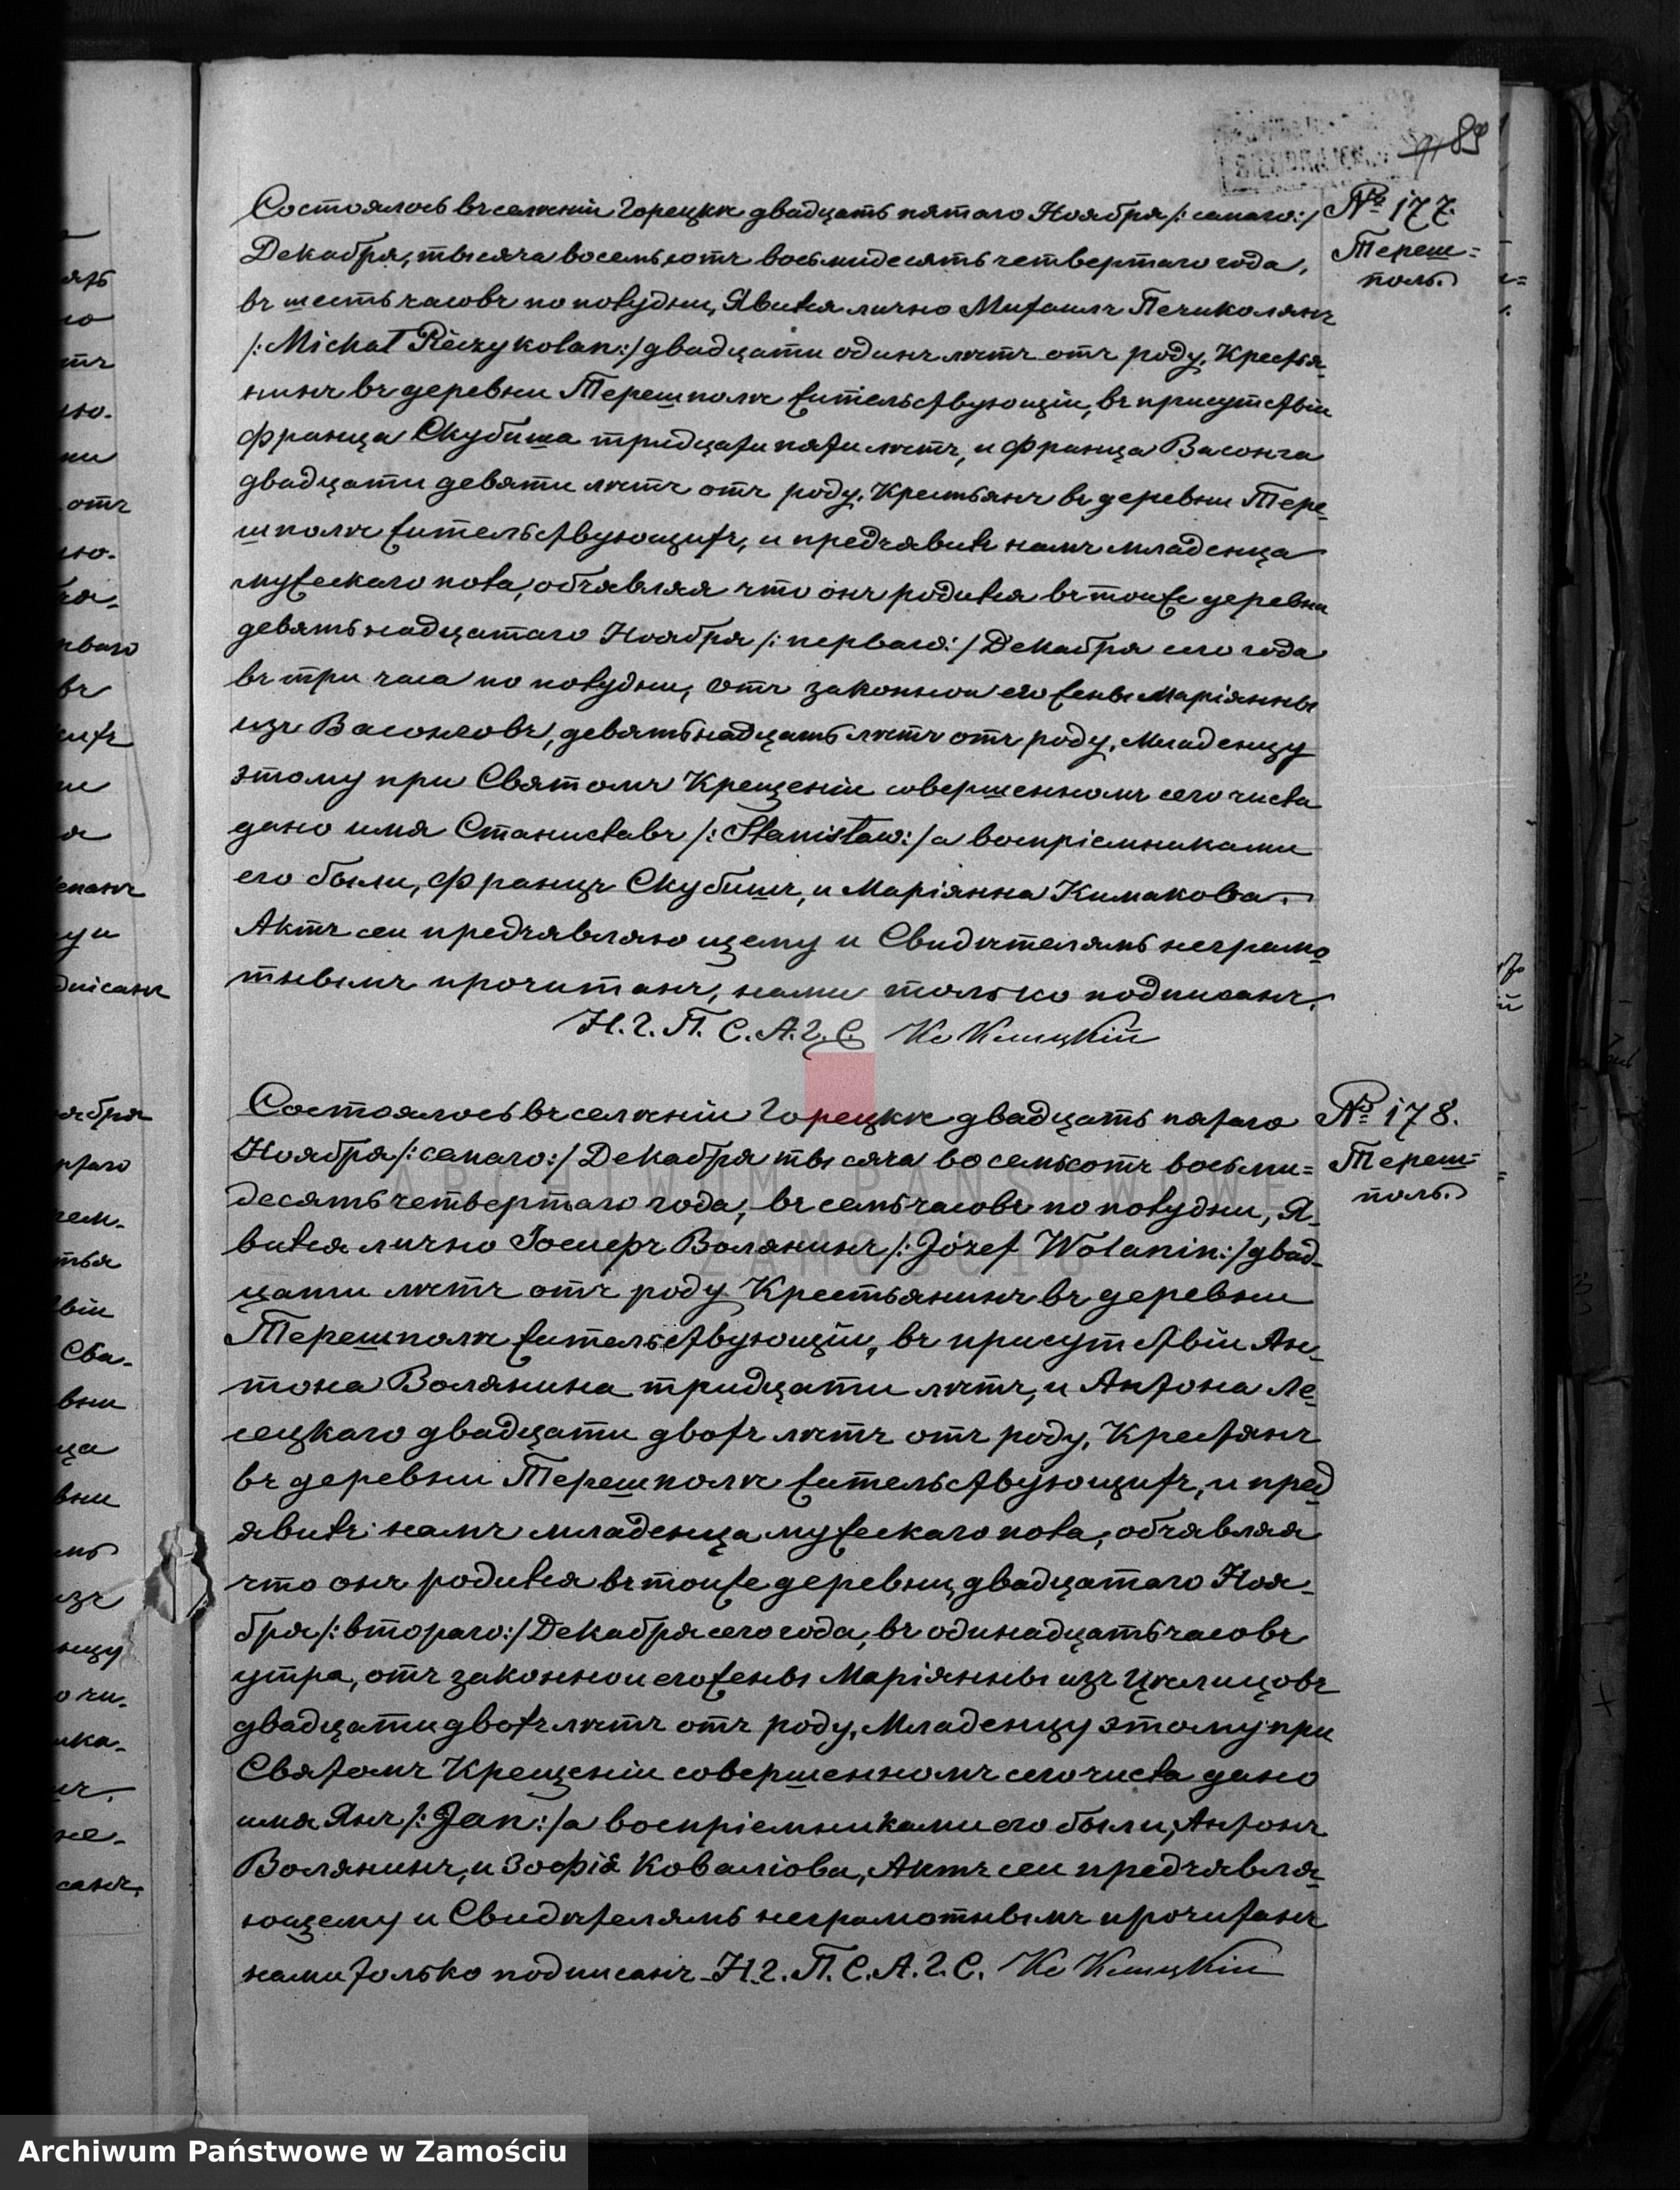 89
Состоялось въ селенiи Горецкѣ двадцать пятаго Ноября /: седмаго :/
Декабря, тысяча восемьсотъ восьмидесять четвертаго года,
въ шесть часовъ по полудни, Явился лично Михаилъ Печиколянъ
/: Michał Pieczykolan :/ двадцати одинъ лѣтъ отъ роду, Крестья-
нинъ въ деревни Терешполѣ жительствующiи, въ присутствiи
Франца Скубиша тридцати пяти лѣтъ, и Франца Васонга
двадцати девяти лѣтъ отъ роду, Крестьянъ въ деревни Тере-
шполѣ жительствующихъ, и предъявилъ намъ младенца
мужескаго пола, объявляя что онъ родился въ тоиже деревни
девятьнадцатаго Ноября /: перваго :/ Декабря сего года
въ три часа по полудни, отъ законнои его жены Марiянны
изъ Васонговъ, девятьнадцать лѣтъ отъ роду, Младенцу
этому при Святомъ Крещенiи совершенномъ сего числа
дано имя Станиславъ /: Stanisław :/ а воспрiемниками
его были, Францъ Скубишъ, и Марiянна Кимакова.
Актъ сеи предъявляющему и Свидѣтелямъ неграмо-
тнымъ прочитанъ, нами только подписанъ.
Н. Г. П. С. А. Г. С. Кс Клицкiй
№ 177.
Тереш=
поль.
Состоялось въ селенiи Горецкѣ двадцать пятаго
Ноября /: седмаго :/ Декабря тысяча восемьсотъ восьми=
десять четвертаго года, въ семь часовъ по полудни, Я-
вился лично Iосифъ Волянинъ /: Józef Wolanin :/ двад-
цати лѣтъ отъ роду Крестьянинъ въ деревни
Терешполѣ жительствующiи, въ присутствiи Ан-
тона Волянина тридцати лѣтъ, и Антона Ле-
сецкаго двадцати двохъ лѣтъ отъ роду, Крестянъ
въ деревни Терешполѣ жительствующихъ, и пред-
явилъ намъ младенца мужескаго пола, объявляя
что онъ родился въ тоиже деревни, двадцатаго Ноя-
бря /: втораго :/ Декабря сего года, въ одинадцать часовъ
утра, отъ законнои его жены Марiянны изъ Цѣлицовъ
двадцати двохъ лѣтъ отъ роду, Младенцу этому при
Святомъ Крещенiи совершенномъ сего числа дано
имя Янъ /: Jan :/ а воспрiемниками его были, Антонъ
Волянинъ, и Зофiя Ковалiова, Актъ сеи предъявля-
ющему и Свидѣтелямъ неграмотнымъ прочитанъ
нами только подписанъ Н. Г. П. С. А. Г. С. Кс Клицкiи
№ 178.
Тереш-
поль.
ARCHIWUM PAŃSTWOWE
W ZAMOŚCIU
Archiwum Państwowe w Zamościu